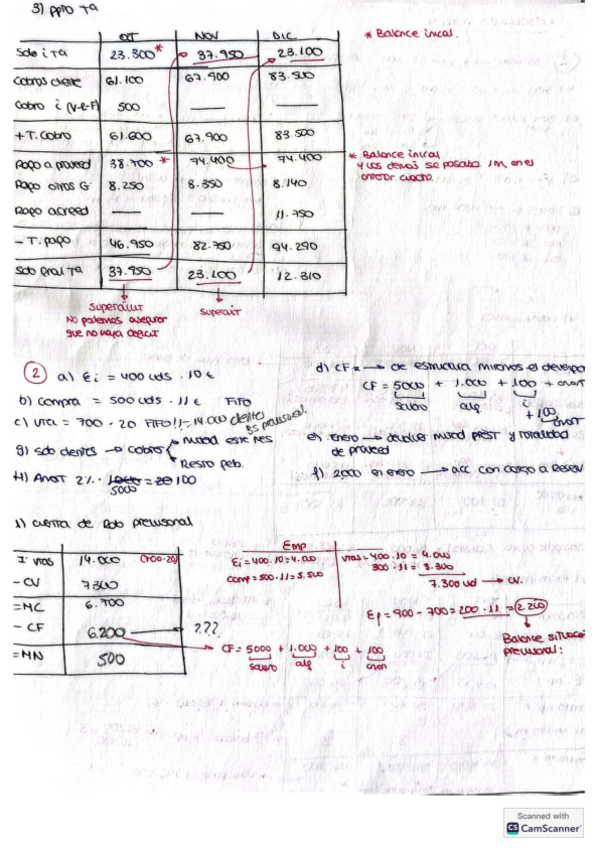 3) PPTO Tª
OCT NOV DIC
Sdo i Tª 23.300* 37.950 23.100
Cobros cliente 61.100 67.900 83.500
Cobro i (V-E-F) 500 — —
+ T. Cobro 61.600 67.900 83.500
Pago a proveed 38.700 * 74.400 74.400
Pago otros G 8.250 8.350 8.140
Pago acreed — — 11.750
- T. pago 46.950 82.750 94.290
Sdo final Tª 37.950 23.100 12.310
* Balance inicial.
* Balance inicial
y los demás se pasaba 1m en el
anterior cuadro.
Superavit
No podemos asegurar
que no haya deficit
Superavit
2
a) Ei = 400 uds · 10 €
b) Compra = 500 uds · 11 € FIFO
c) Vta = 700 · 20 FIFO!! - 14.000 clientes
Bs previsional
g) Sdo clientes → cobros
Mitad este mes
Resto feb.
H) Amort 2% · 5000 = 100
d) CF → de estructura
CF = 5000 + 1.000 + 100 + amort
salario alq i
+ 100
amort
e) enero → devolver mitad prest y totalidad
de proveed
f) 2000 en enero → acc con cargo a Reser
1) Cuenta de Rdo previsional
I. vtas 14.000 (700·20)
- CV 7300
= MC 6.700
- CF 6.200 → ???
= MN 500
Emp
Ei = 400·10 = 4.000
Comp = 500·11 = 5.500
Vtas = 400·10 = 4.000
300·11 = 3.300
7.300 ud → CV.
Ef = 900 - 700 = 200 · 11 = 2.200
Balance situac
previsional:
CF = 5000 + 1.000 + 100 + 100
salario alq i amor
Scanned with
CS CamScanner